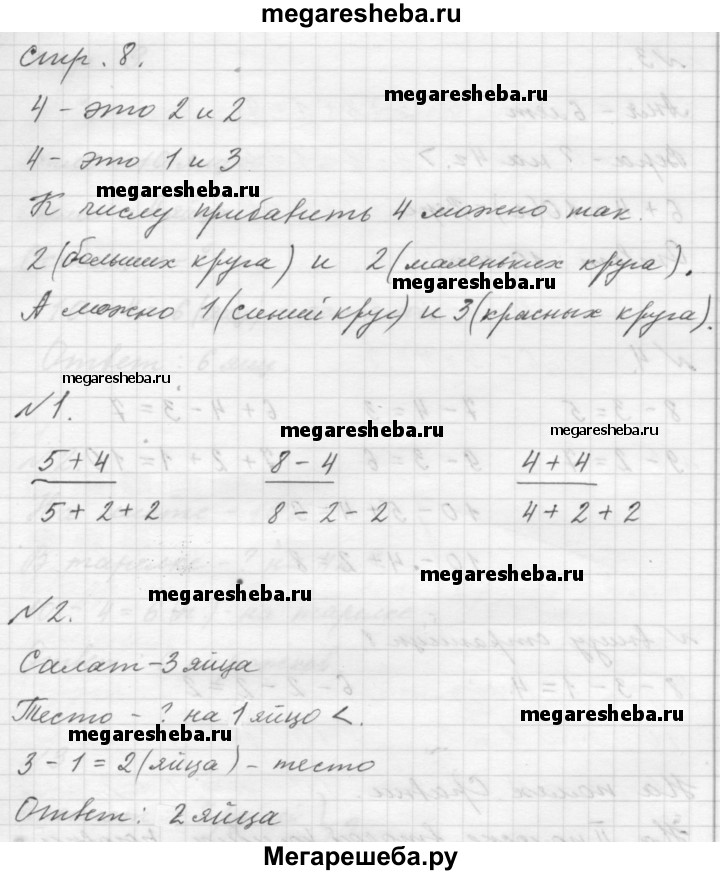 megaresheba.ru
стр. 8.
megaresheba.ru
4 - это 2 и 2
4 - это 1 и 3
megaresheba.ru
К числу прибавить 4 можно так.
2 (больших круга) и 2 (маленьких круга).
megaresheba.ru
А можно 1 (синий круг) и 3 (красных круга).
megaresheba.ru
№1.
megaresheba.ru
megaresheba.ru
5 + 4 8 - 4 4 + 4
5 + 2 + 2 8 - 2 - 2 4 + 2 + 2
megaresheba.ru
megaresheba.ru
№2.
Салат - 3 яйца
Тесто - ? на 1 яйцо <.
megaresheba.ru
megaresheba.ru
3 - 1 = 2 (яйца) - тесто
Ответ: 2 яйца
megaresheba.ru
Мегарешеба.ру